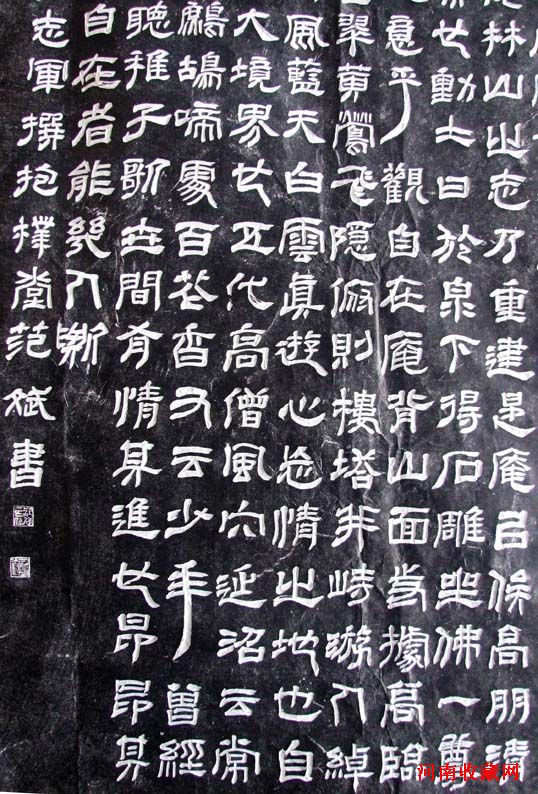 林山之志乃重建是庵㠯候高朋清
也動土日於泉下得石雕坐佛一尊
意乎觀自在庵背山面據高臨
翠黄鶯飛隱俯則樓塔并峙游人綽
風藍天白雲真遊心忘情之地也自
大境界也五代高僧風穴延沼云常
鷓鴣啼處百花香又云少年曾經
聽稚子歌世間有情其進也昂昂其
自在者能幾人斯
志軍撰抱樸堂范斌書
河南收藏网